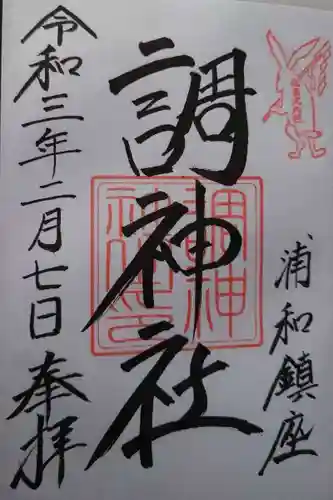 浦和鎮座
調神社
令和三年二月七日 奉拝